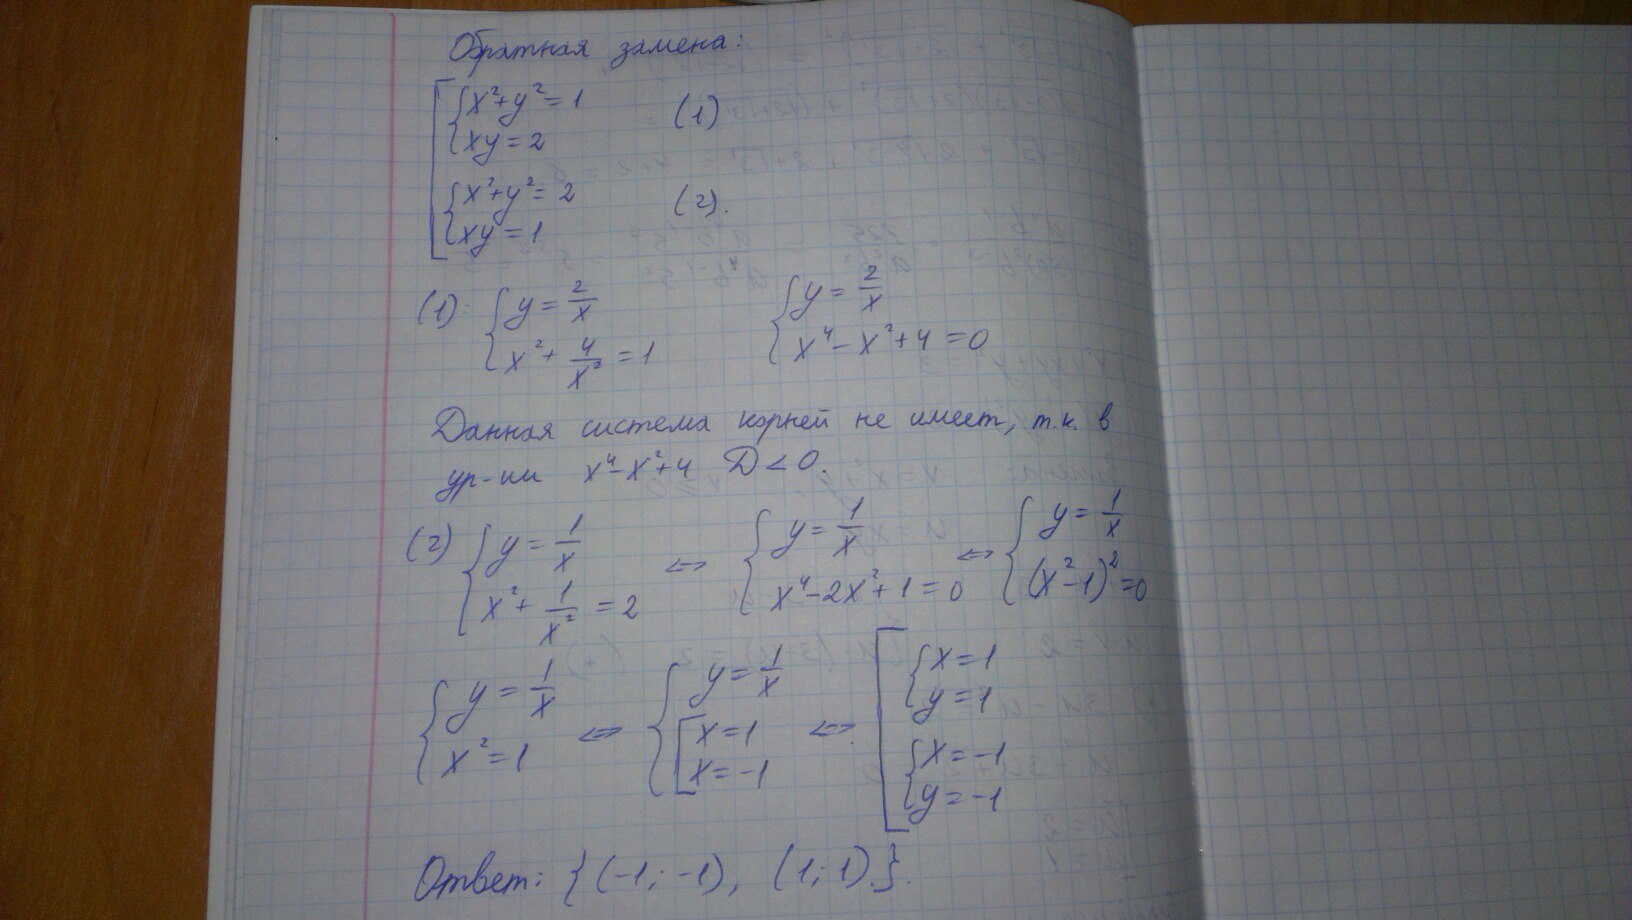 Обратная замена:
[ { x²+y²=1
{ xy=2 (1)
{ x²+y²=2
{ xy=1 (2).
(1): { y = 2/x { y = 2/x
{ x² + 4/x² = 1 { x⁴ - x² + 4 = 0
Данная система корней не имеет, т.к. в
ур-нии x⁴-x²+4 D<0.
(2) { y = 1/x ⇔ { y = 1/x ⇔ { y = 1/x
{ x² + 1/x² = 2 { x⁴-2x²+1=0 { (x²-1)²=0
{ y = 1/x ⇔ { y = 1/x ⇔ [ { x=1
{ x²=1 { [ x=1 { y=1
[ x=-1 { x=-1
{ y=-1
Ответ: {(-1;-1), (1;1).}.